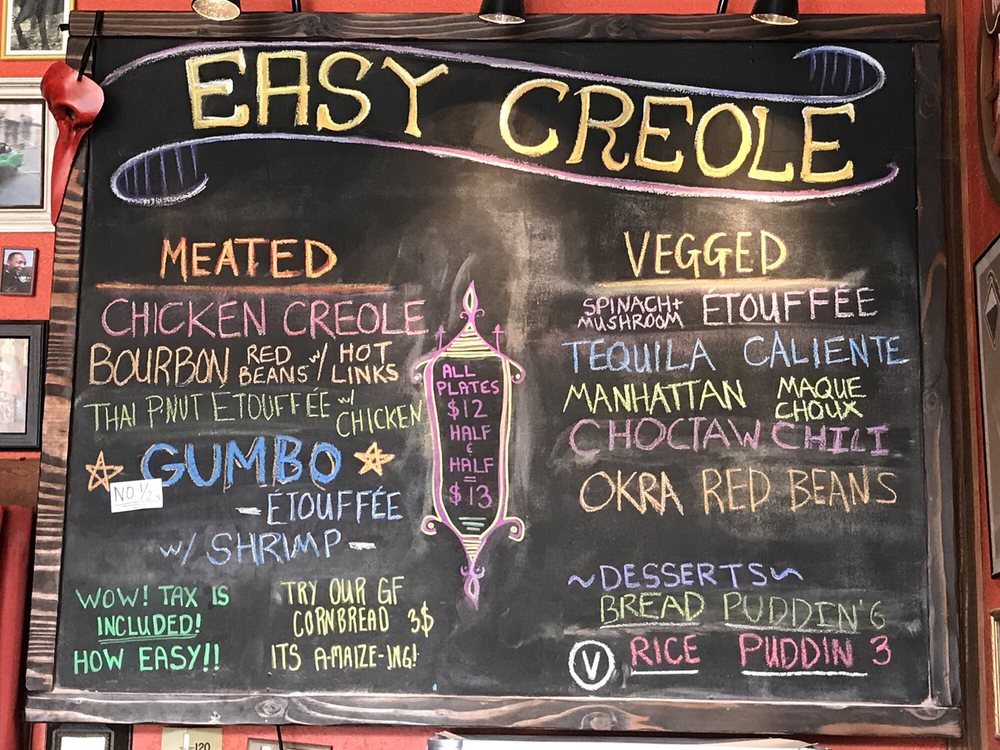 EASY CREOLE
MEATED
CHICKEN CREOLE
BOURBON RED BEANS w/ HOT LINKS
THAI P.NUT ETOUFFÉE w/ CHICKEN
GUMBO
NO 1/2s
- ÉTOUFFÉE
w/ SHRIMP -
WOW! TAX IS
INCLUDED!
HOW EASY!!
TRY OUR GF
CORNBREAD 3$
ITS A-MAIZE-ING!
ALL
PLATES
$12
HALF
&
HALF
=
$13
VEGGED
SPINACH + MUSHROOM ÉTOUFFÉE
TEQUILA CALIENTE
MANHATTAN MAQUE CHOUX
CHOCTAW CHILI
OKRA RED BEANS
~DESSERTS~
BREAD PUDDIN' 6
V RICE PUDDIN 3
120